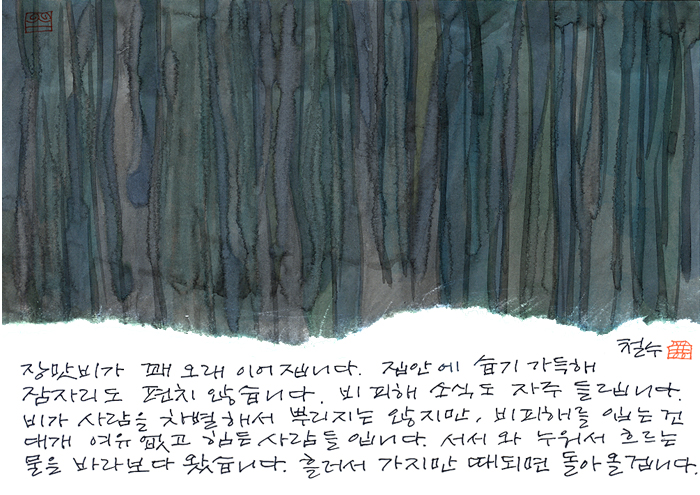 철수
장맛비가 꽤 오래 이어집니다. 집안에 습기 가득해
잠자리도 편치 않습니다. 비 피해 소식도 자주 들립니다.
비가 사람을 차별해서 뿌리지는 않지만, 비피해를 입는 건
대개 여유 없고 힘든 사람들입니다. 서서 와 누워서 흐르는
물을 바라보다 왔습니다. 흘러서 가지만 때되면 돌아올겁니다.